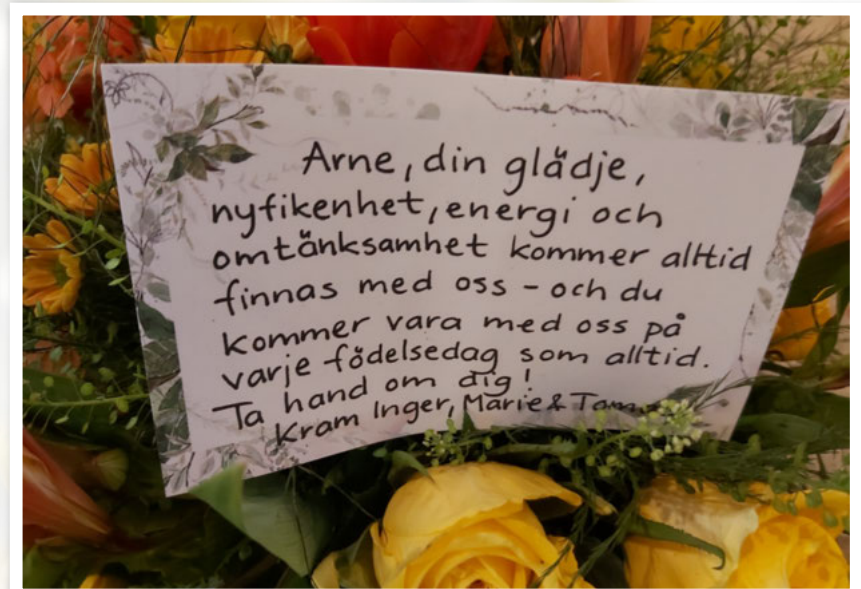 Arne, din glädje,
nyfikenhet, energi och
omtänksamhet kommer alltid
finnas med oss - och du
kommer vara med oss på
varje födelsedag som alltid.
Ta hand om dig!
Kram Inger, Marie & Tom